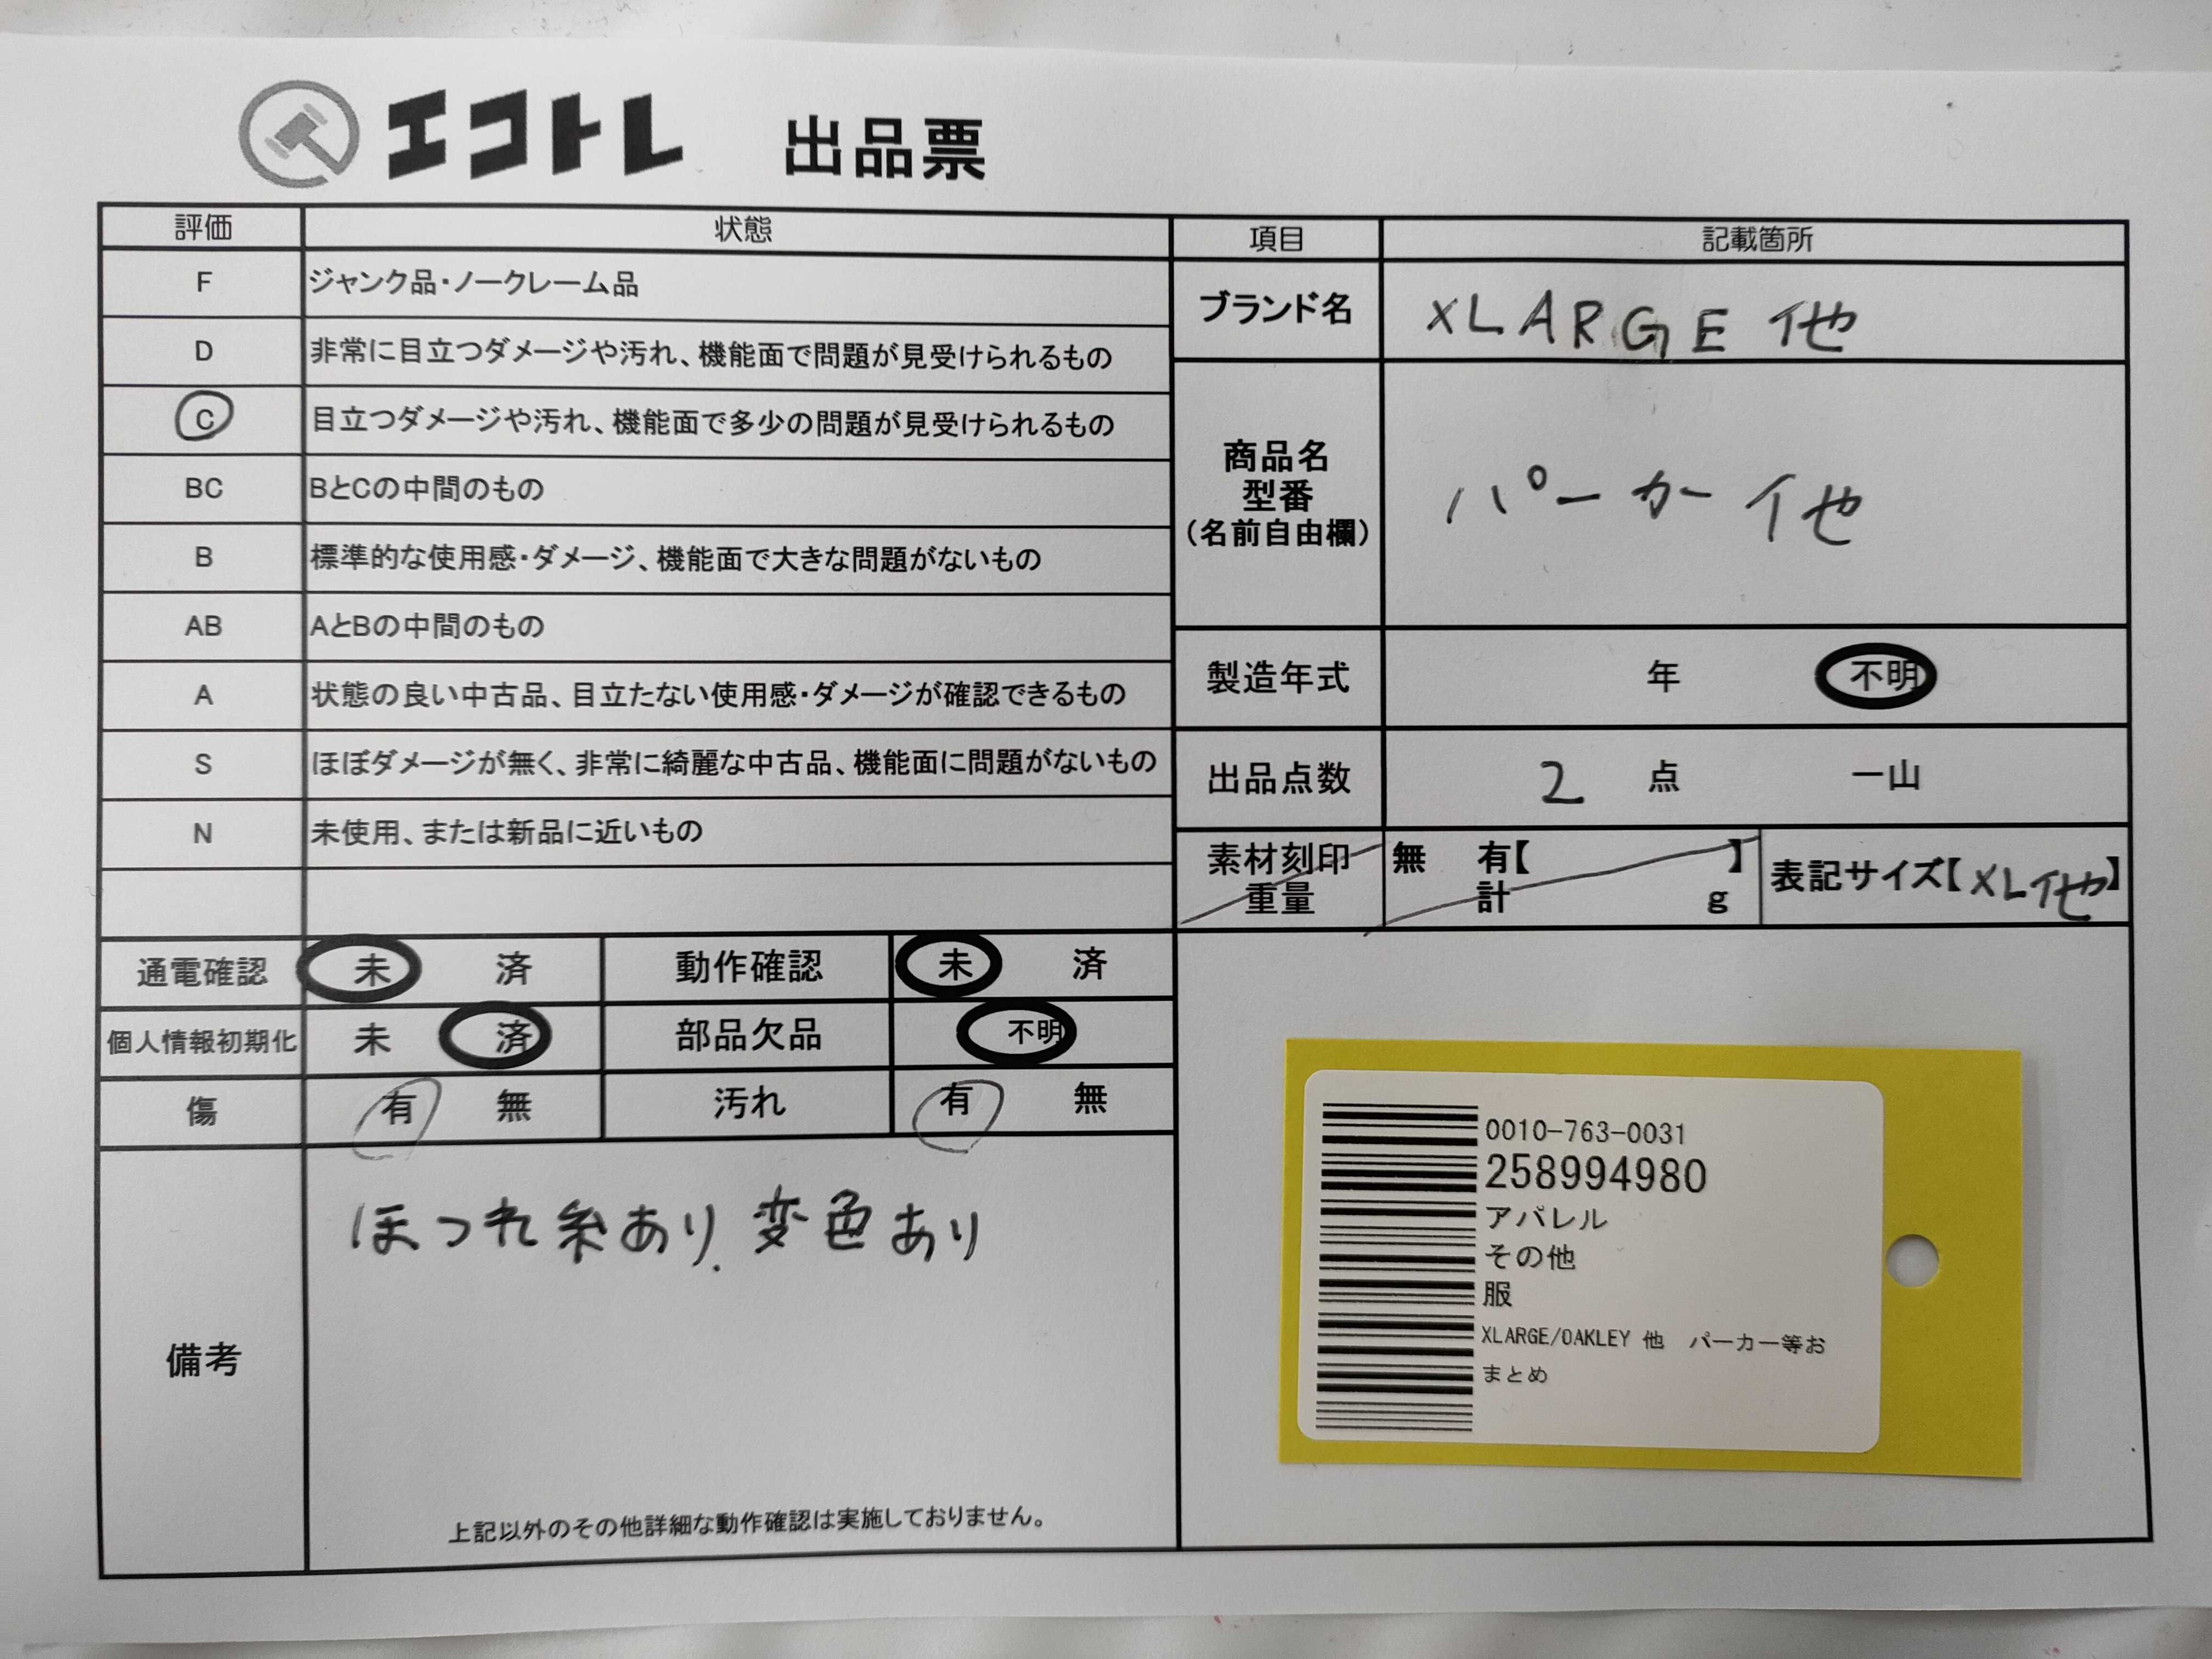 エコトレ 出品票
評価 状態
F ジャンク品・ノークレーム品
D 非常に目立つダメージや汚れ、機能面で問題が見受けられるもの
C 目立つダメージや汚れ、機能面で多少の問題が見受けられるもの
BC BとCの中間のもの
B 標準的な使用感・ダメージ、機能面で大きな問題がないもの
AB AとBの中間のもの
A 状態の良い中古品、目立たない使用感・ダメージが確認できるもの
S ほぼダメージが無く、非常に綺麗な中古品、機能面に問題がないもの
N 未使用、または新品に近いもの
項目 記載箇所
ブランド名 XLARGE 他
商品名
型番
(名前自由欄)
パーカー 他
製造年式 年 不明
出品点数 2 点 一山
素材刻印 無 有【 】
重量 計 g
表記サイズ【XL他】
通電確認 未 済 動作確認 未 済
個人情報初期化 未 済 部品欠品 不明
傷 有 無 汚れ 有 無
備考
ほつれ糸あり、変色あり
上記以外のその他詳細な動作確認は実施しておりません。
0010-763-0031
258994980
アパレル
その他
服
XLARGE/OAKLEY 他 パーカー等お
まとめ